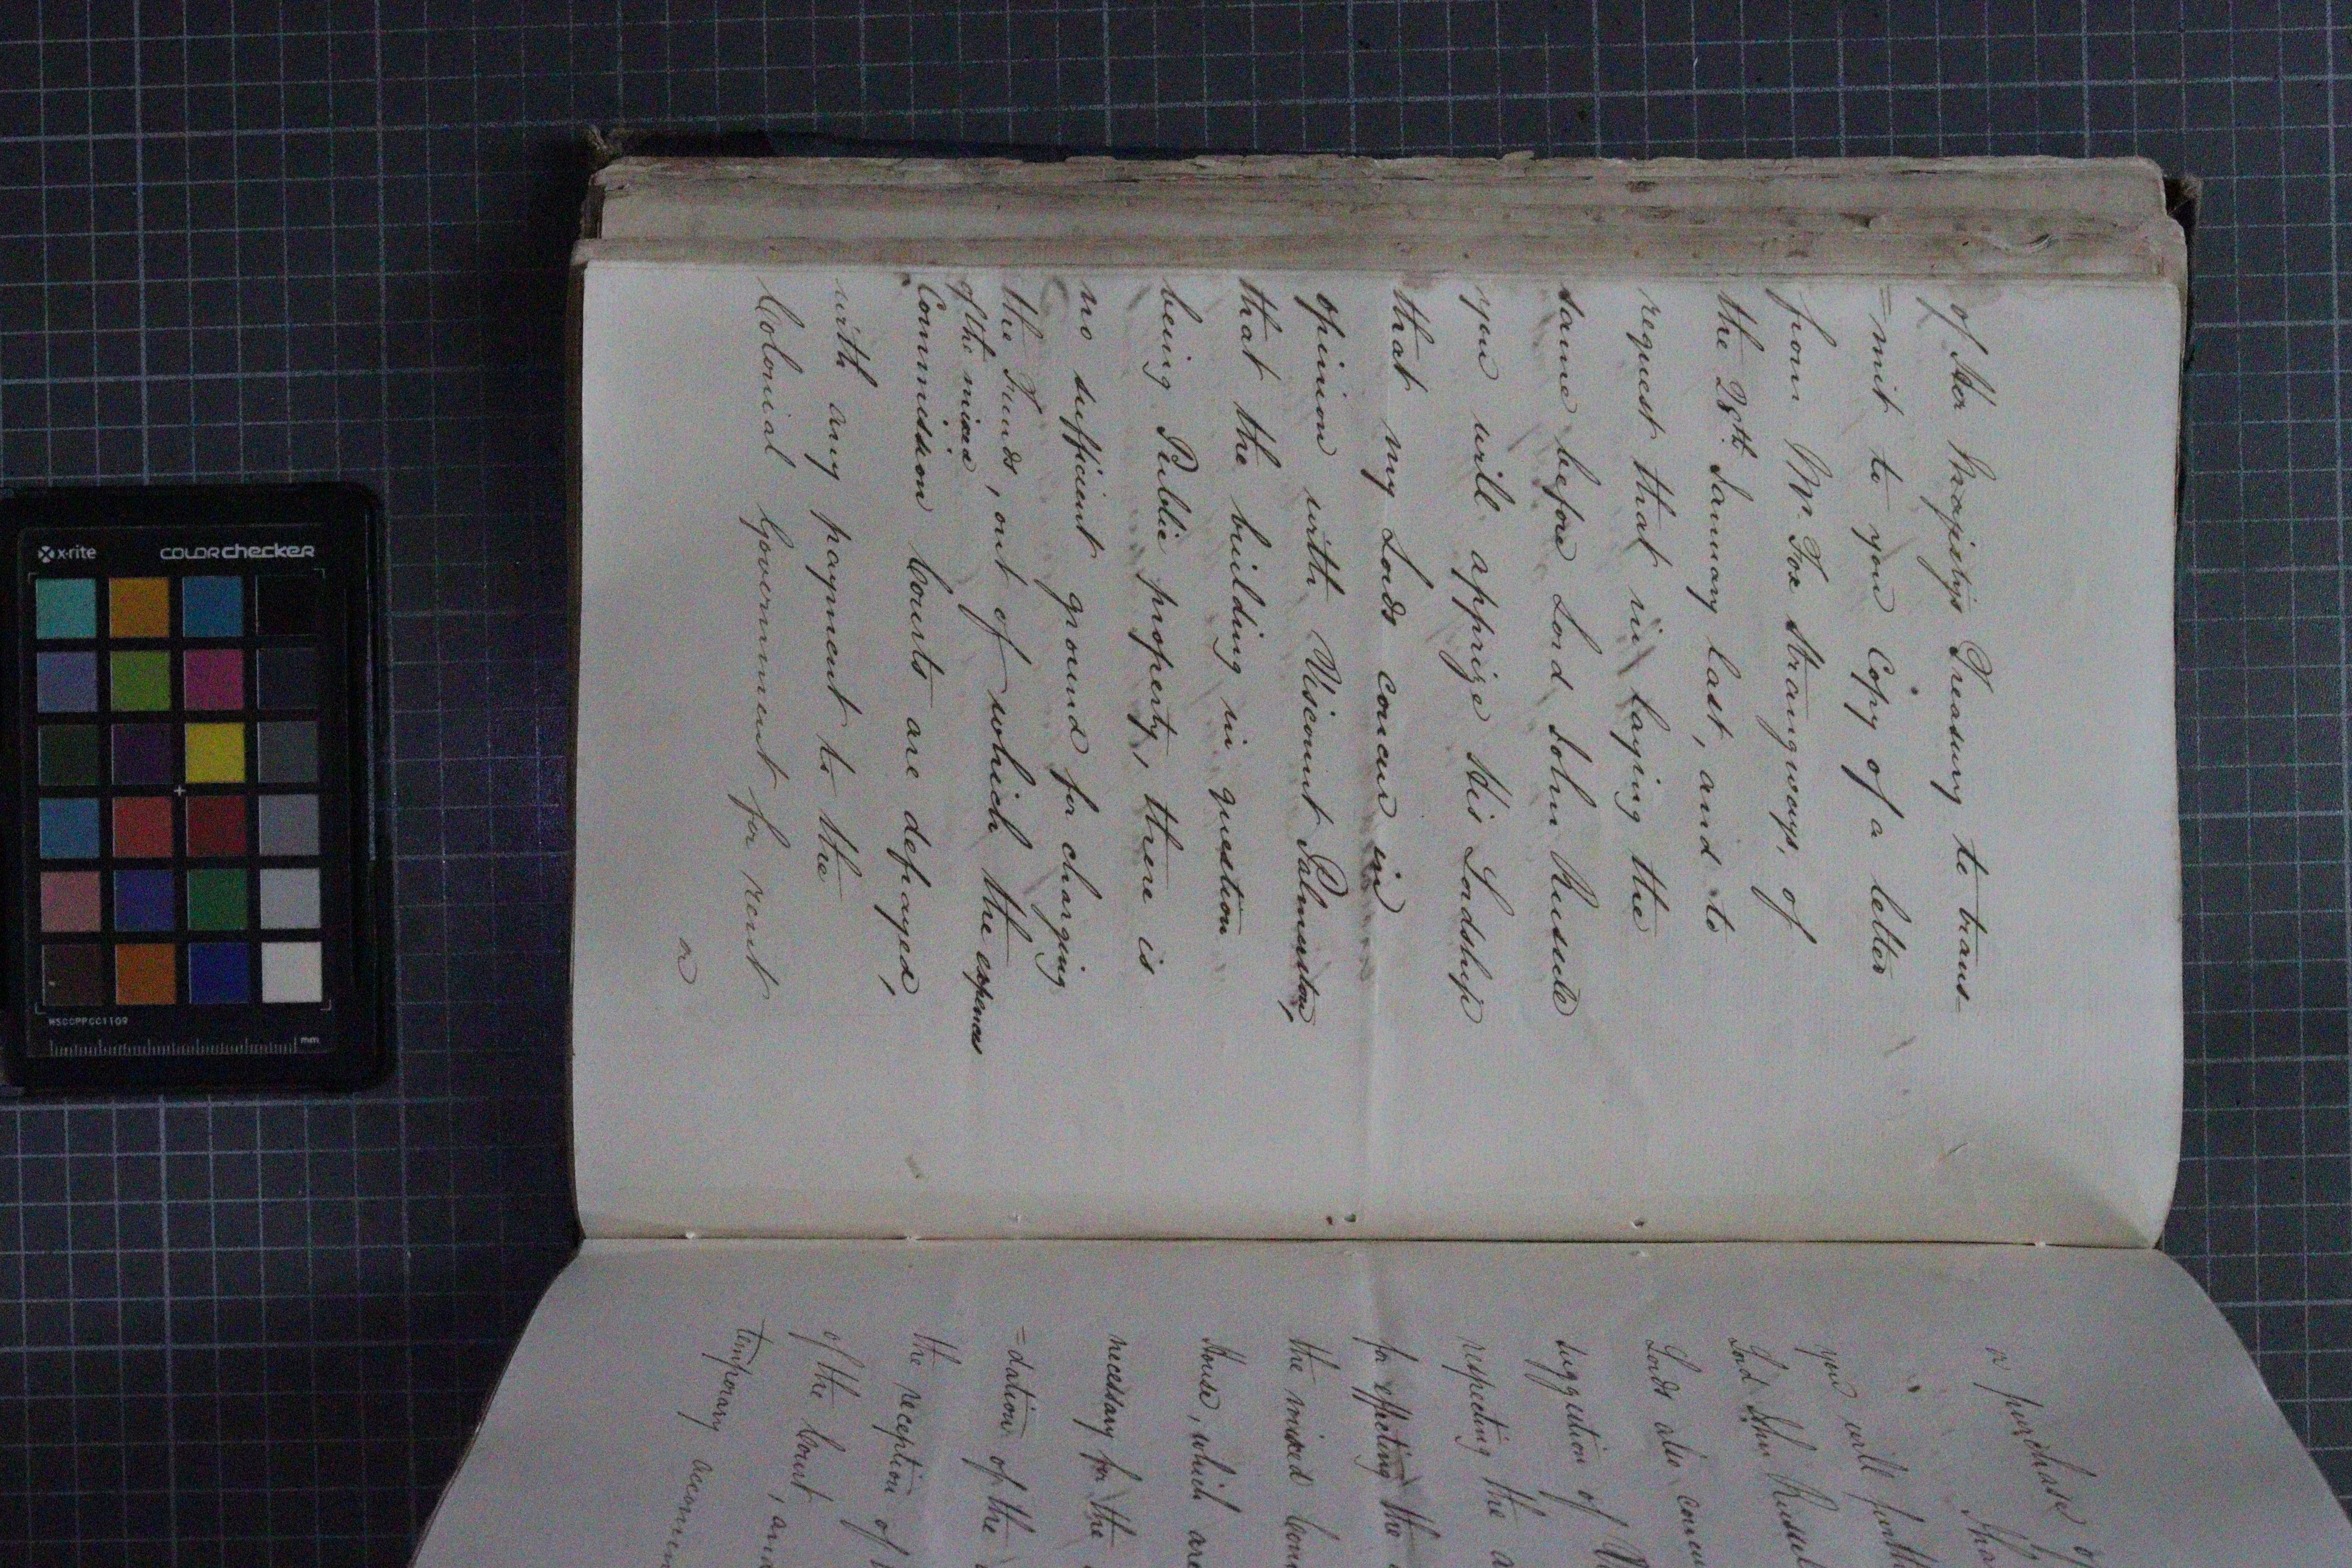 of Her Majesty's Treasury to trans-
=mit to you Copy of a letter
from Mr. Fox Strangways, of
the 28th. January last, and to
request that in laying the
same before Lord John Russell
you will apprize His Lordship
that my Lords concur in
opinion with Viscount Palmerston,
that the building in question
being Public property, there is
no sufficient ground for charging
the Funds, out of which the expences
of the mixed
Commission Courts are defrayed,
with any payment to the
Colonial Government for rent
or
or purchase
you will
Lord John Russell
Lords also concur
suggestion of
respecting the
for effecting the
the mixed
House, which are
necessary for the
=dation of the
the reception of
of the Court, and
temporary
x-rite
colorchecker
MSCCPPCC1109
mm